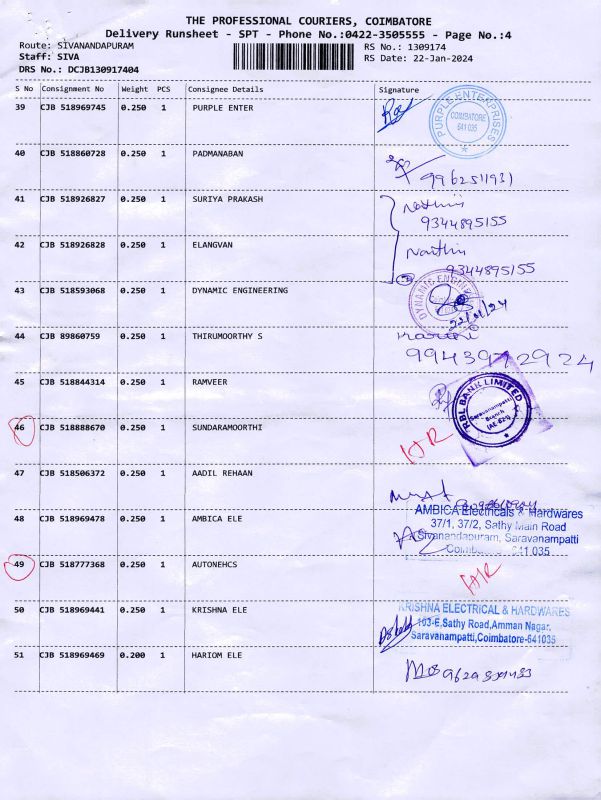 THE PROFESSIONAL COURIERS, COIMBATORE
Delivery Runsheet - SPT - Phone No.:0422-3505555 - Page No.:4
Route: SIVANANDAPURAM RS No.: 1309174
Staff: SIVA RS Date: 22-Jan-2024
DRS No.: DCJB130917404
S No Consignment No Weight PCS Consignee Details Signature
39 CJB 518969745 0.250 1 PURPLE ENTER
PURPLE ENTERPRISES
COIMBATORE
641 035
40 CJB 518860728 0.250 1 PADMANABAN
9962511931
41 CJB 518926827 0.250 1 SURIYA PRAKASH
9344895155
42 CJB 518926828 0.250 1 ELANGVAN
9344895155
43 CJB 518593068 0.250 1 DYNAMIC ENGINEERING
DYNAMIC
22/01/24
44 CJB 89860759 0.250 1 THIRUMOORTHY S
9943972924
45 CJB 518844314 0.250 1 RAMVEER
RBL BANK LIMITED
Saravanampatti
Branch
46 CJB 518888670 0.250 1 SUNDARAMOORTHI
47 CJB 518506372 0.250 1 AADIL REHAAN
48 CJB 518969478 0.250 1 AMBICA ELE
AMBICA Electricals & Hardwares
37/1, 37/2, Sathy Main Road
Sivanandapuram, Saravanampatti
Coimbatore 641 035
49 CJB 518777368 0.250 1 AUTONEHCS
50 CJB 518969441 0.250 1 KRISHNA ELE
KRISHNA ELECTRICAL & HARDWARES
103-E,Sathy Road,Amman Nagar,
Saravanampatti,Coimbatore-641035
51 CJB 518969469 0.200 1 HARIOM ELE